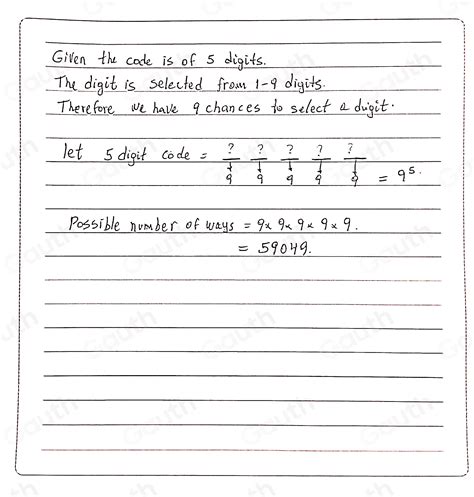 Given the code is of 5 digits.
The digit is selected from 1-9 digits.
Therefore we have 9 chances to select a digit.
let 5 digit code = ? ? ? ? ?
9 9 9 9 9 = 9⁵.
Possible number of ways = 9 x 9 x 9 x 9 x 9.
= 59049.